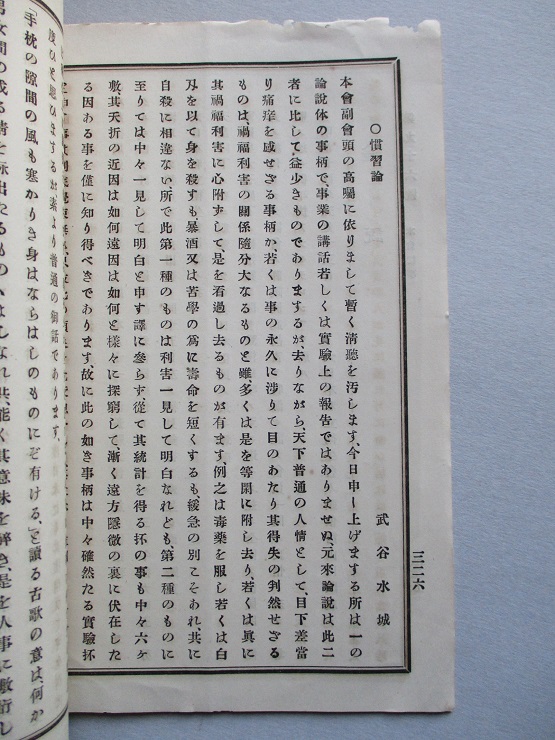 三二六
○慣習論
武谷水城
本會副會頭の高囑に依りまして暫く淸聽を汚します、今日申し上げまする所は一の
論說体の事柄で、事業の講話若しくは實驗上の報告ではありませぬ、元來論說は此二
者に比して益少きものでありまするが、去りながら、天下普通の人情として、目下差當
り痛痒を感せざる事柄か、若くは事の永久に涉りて目のあたり其得失の判然せざる
ものは、禍福利害の關係隨分大なるものと雖、多くは是を等閑に附し去り、若くは眞に
其禍福利害に心附ずして、是を看過し去るものが有ます、例之は毒藥を服し若くは白
刄を以て身を殺すも、暴酒又は苦學の爲に壽命を短くするも、緩急の別こそあれ、共に
自殺に相違ない、所で此第一種のものは利害一見して明白なれども、第二種のものに
至りては中々一見して明白と申す譯に參らず、從て其統計を得る抔の事も中々六ヶ
敷其夭折の近因は如何遠因は如何と樣々に探窮して漸く遠方隱微の裏に伏在した
る因ある事を僅に知り得べきであります、故に此の如き事柄は中々確然たる實驗抔
度ひと思ひまする、お案より普通の御話であります、
「手枕の隙間の風も寒かりき身はならはしのものにぞ有ける、」と讀る古歌の意は、何か
男女間の或る情を詠出たるもの